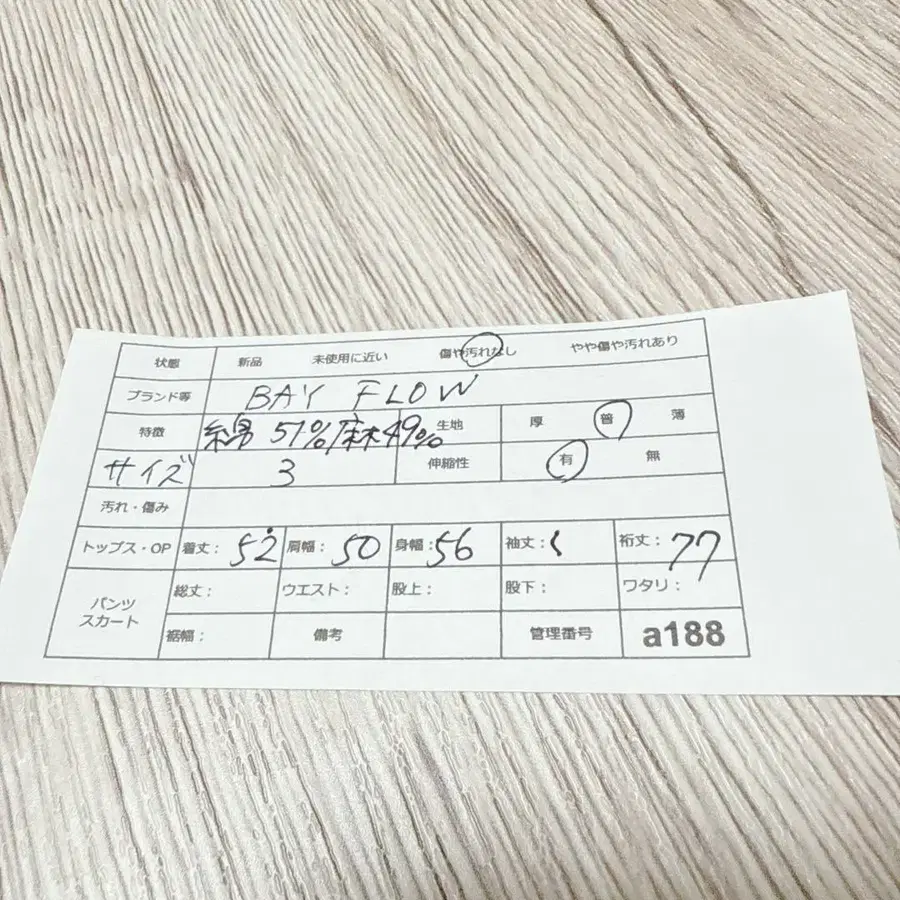 状態 新品 未使用に近い 傷や汚れなし やや傷や汚れあり
ブランド等 BAY FLOW
特徴 綿 51%/麻49% 生地 厚 普 薄
サイズ 3 伸縮性 有 無
汚れ・傷み
トップス・OP 着丈: 52 肩幅: 50 身幅: 56 袖丈: 裄丈: 77
パンツ スカート 総丈: ウエスト: 股上: 股下: ワタリ:
裾幅: 備考 管理番号 a188